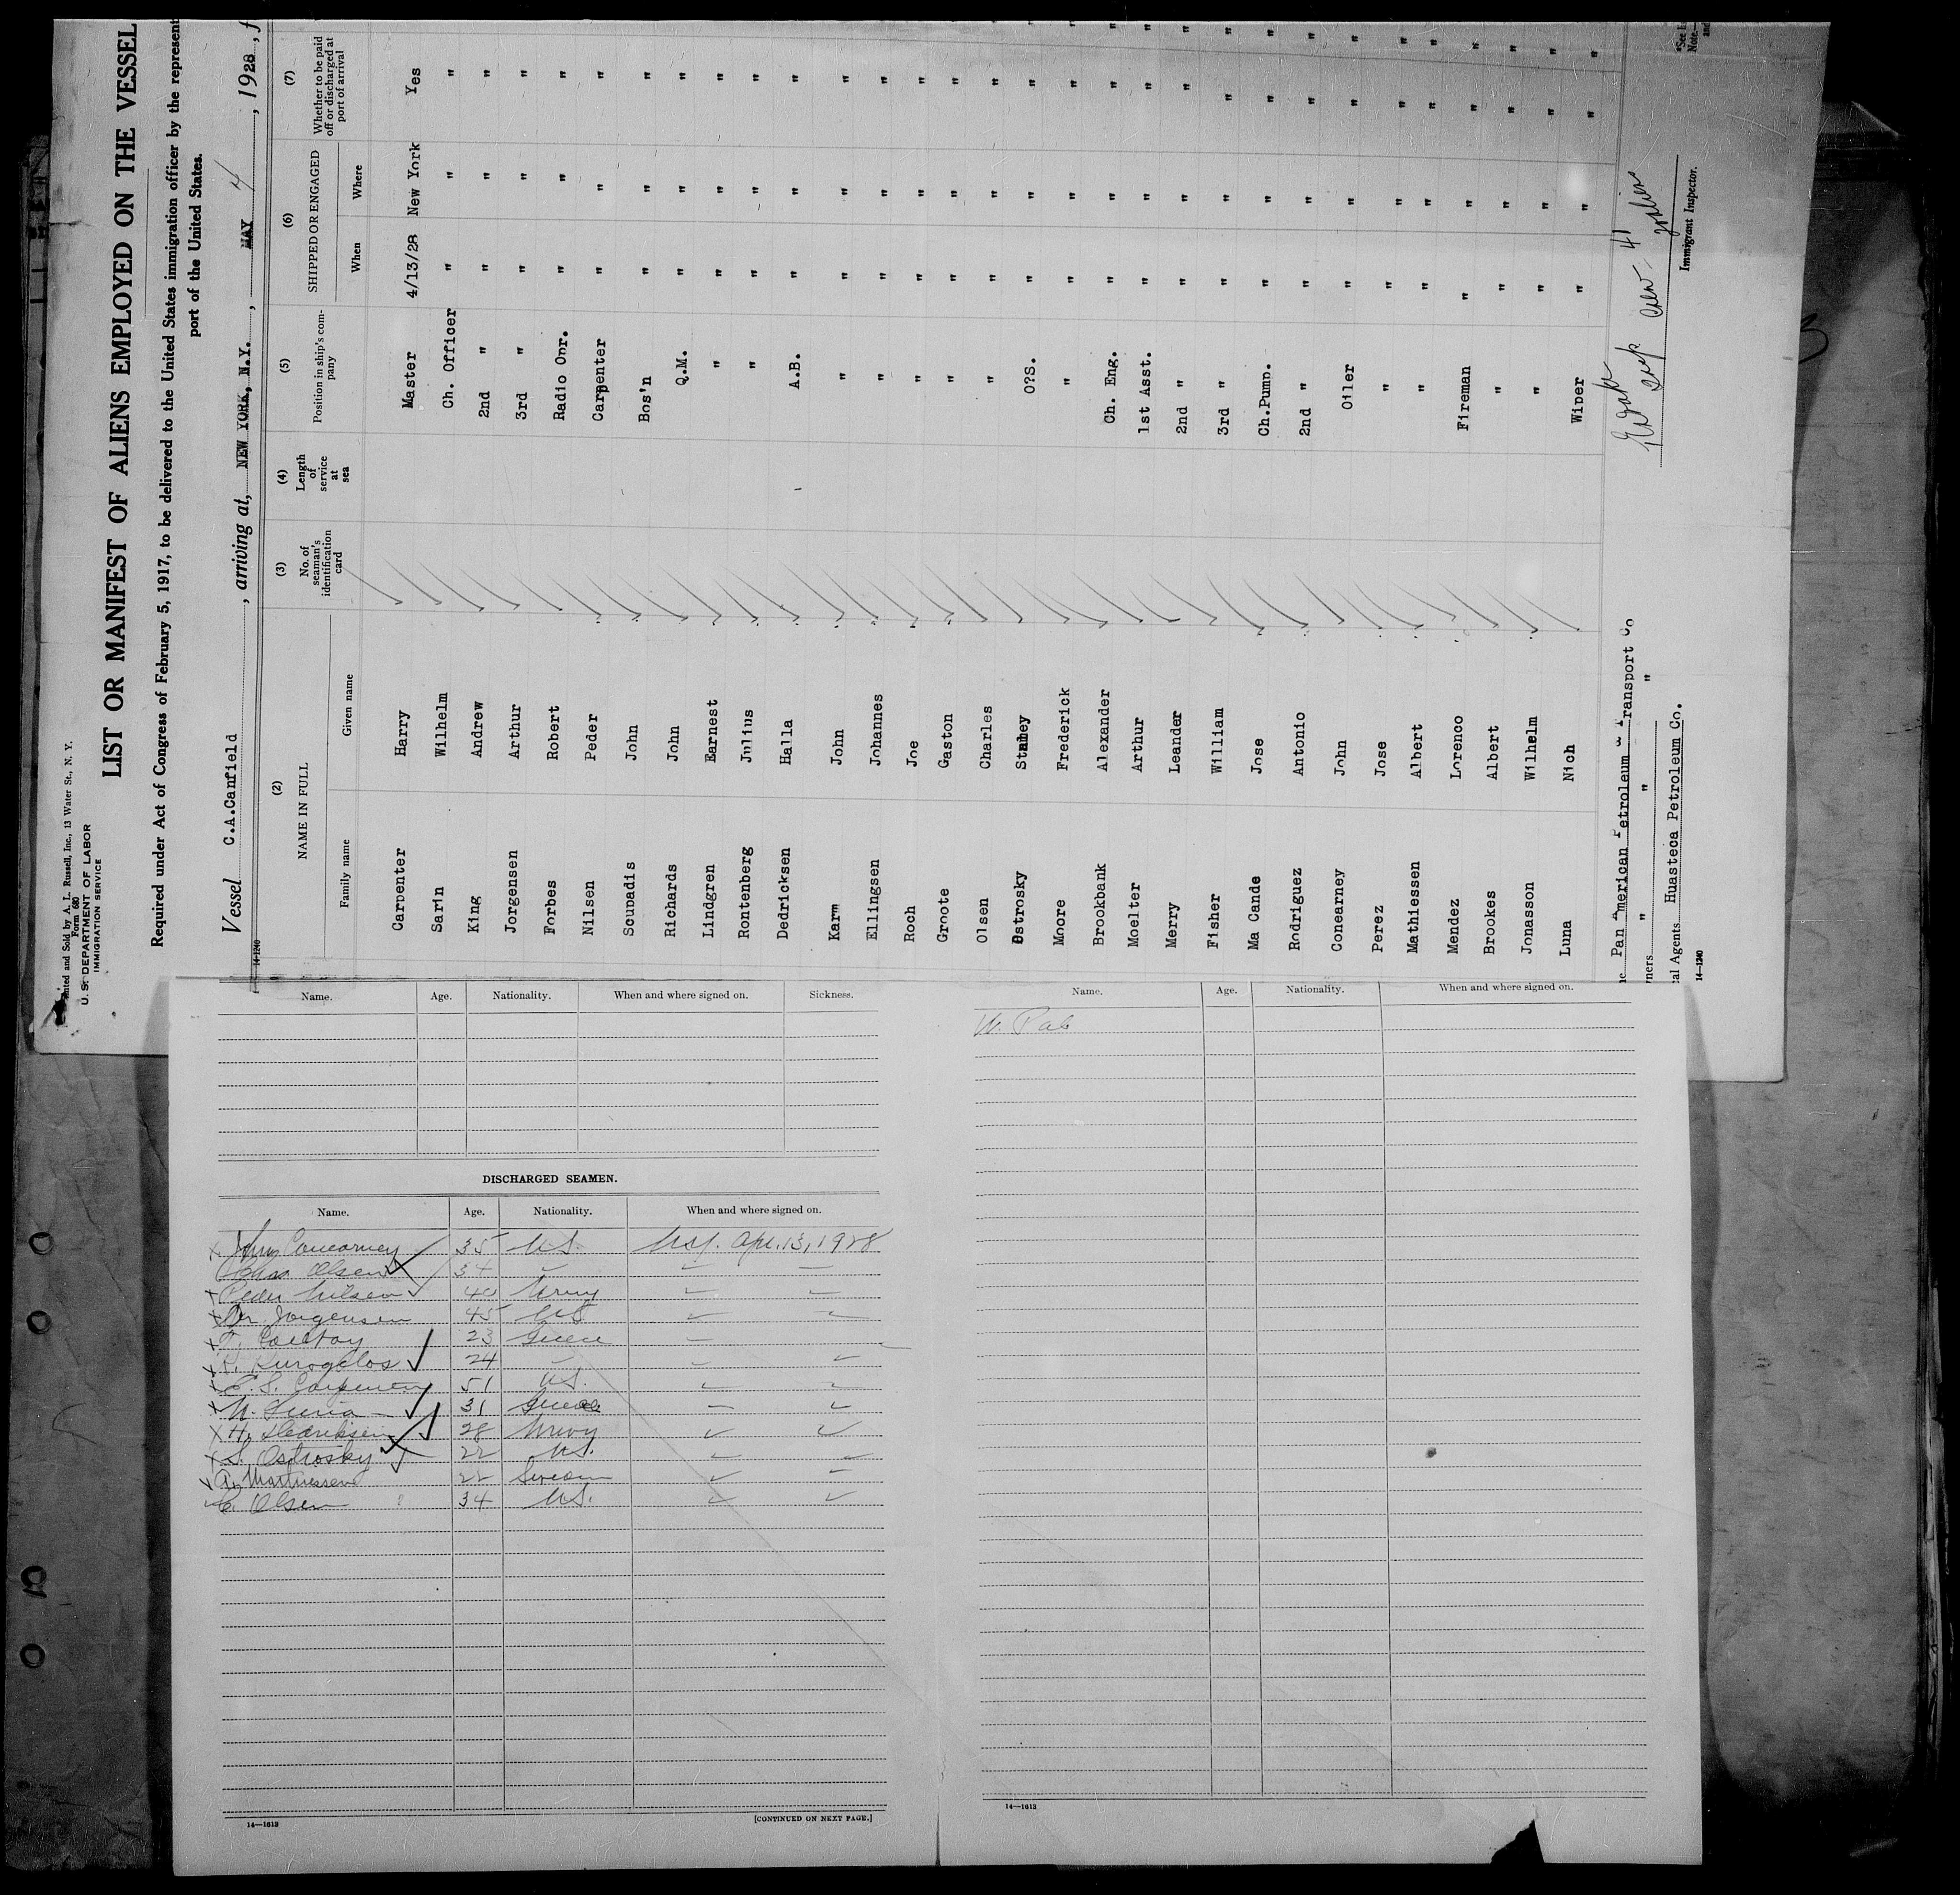 Printed and Sold by A. L. Russell, Inc., 13 Water St., N. Y.
Form 680
U. S. DEPARTMENT OF LABOR
IMMIGRATION SERVICE
LIST OR MANIFEST OF ALIENS EMPLOYED ON THE VESSEL
Required under Act of Congress of February 5, 1917, to be delivered to the United States immigration officer by the represent
port of the United States.
Vessel C.A.Canfield, arriving at, NEW YORK, N.Y., MAY 4, 1928, f
14-1240
(2) (3) (4) (5) (6) (7)
NAME IN FULL No. of seaman's identification card Length of service at sea Position in ship's company SHIPPED OR ENGAGED Whether to be paid off or discharged at port of arrival
Family name Given name When Where
Carpenter Harry Master 4/13/28 New York Yes
Sarin Wilhelm Ch. Officer " " "
King Andrew 2nd " " " "
Jorgensen Arthur 3rd " " " "
Forbes Robert Radio Opr. " " "
Nilsen Peder Carpenter " " "
Scupadis John Bos'n " " "
Richards John Q.M. " " "
Lindgren Earnest " " " "
Rontenberg Julius " " " "
Dedricksen Halla A.B. " " "
Karm John " " " "
Ellingsen Johannes " " " "
Roch Joe " " " "
Groote Gaston " " " "
Olsen Charles " " " "
Ostrosky Stanley O?S. " " "
Moore Frederick " " " "
Brookbank Alexander Ch. Eng. " " "
Moelter Arthur 1st Asst. " " "
Merry Leander 2nd " " " "
Fisher William 3rd " " " "
Ma Cande Jose Ch.Pump. " " "
Rodriguez Antonio 2nd " " " "
Conearney John Oiler " " "
Perez Jose " " " "
Mathiessen Albert " " " "
Mendez Lorenco Fireman " " "
Brookes Albert " " " "
Jonasson Wilhelm " " " "
Luna Nich Wiper " " "
Pan American Petroleum & Transport Co
ners " " "
al Agents Huasteca Petroleum Co.
14-1240
crew 41
Immigrant Inspector.
*See
Note.—
Name. Age. Nationality. When and where signed on. Sickness.
DISCHARGED SEAMEN.
Name. Age. Nationality. When and where signed on.
John Conearney 35 US. Apr. 13, 1928
Chas Olsen 34
Peder Nilsen 40
Ar. Jorgensen 45 US
23 Greece
24
51 US.
31 Greece
H. Dedriksen 28
S. Ostrosky 22 US.
A. 22
C. Olsen 34 US.
14—1613
[CONTINUED ON NEXT PAGE.]
Name. Age. Nationality. When and where signed on.
14—1613